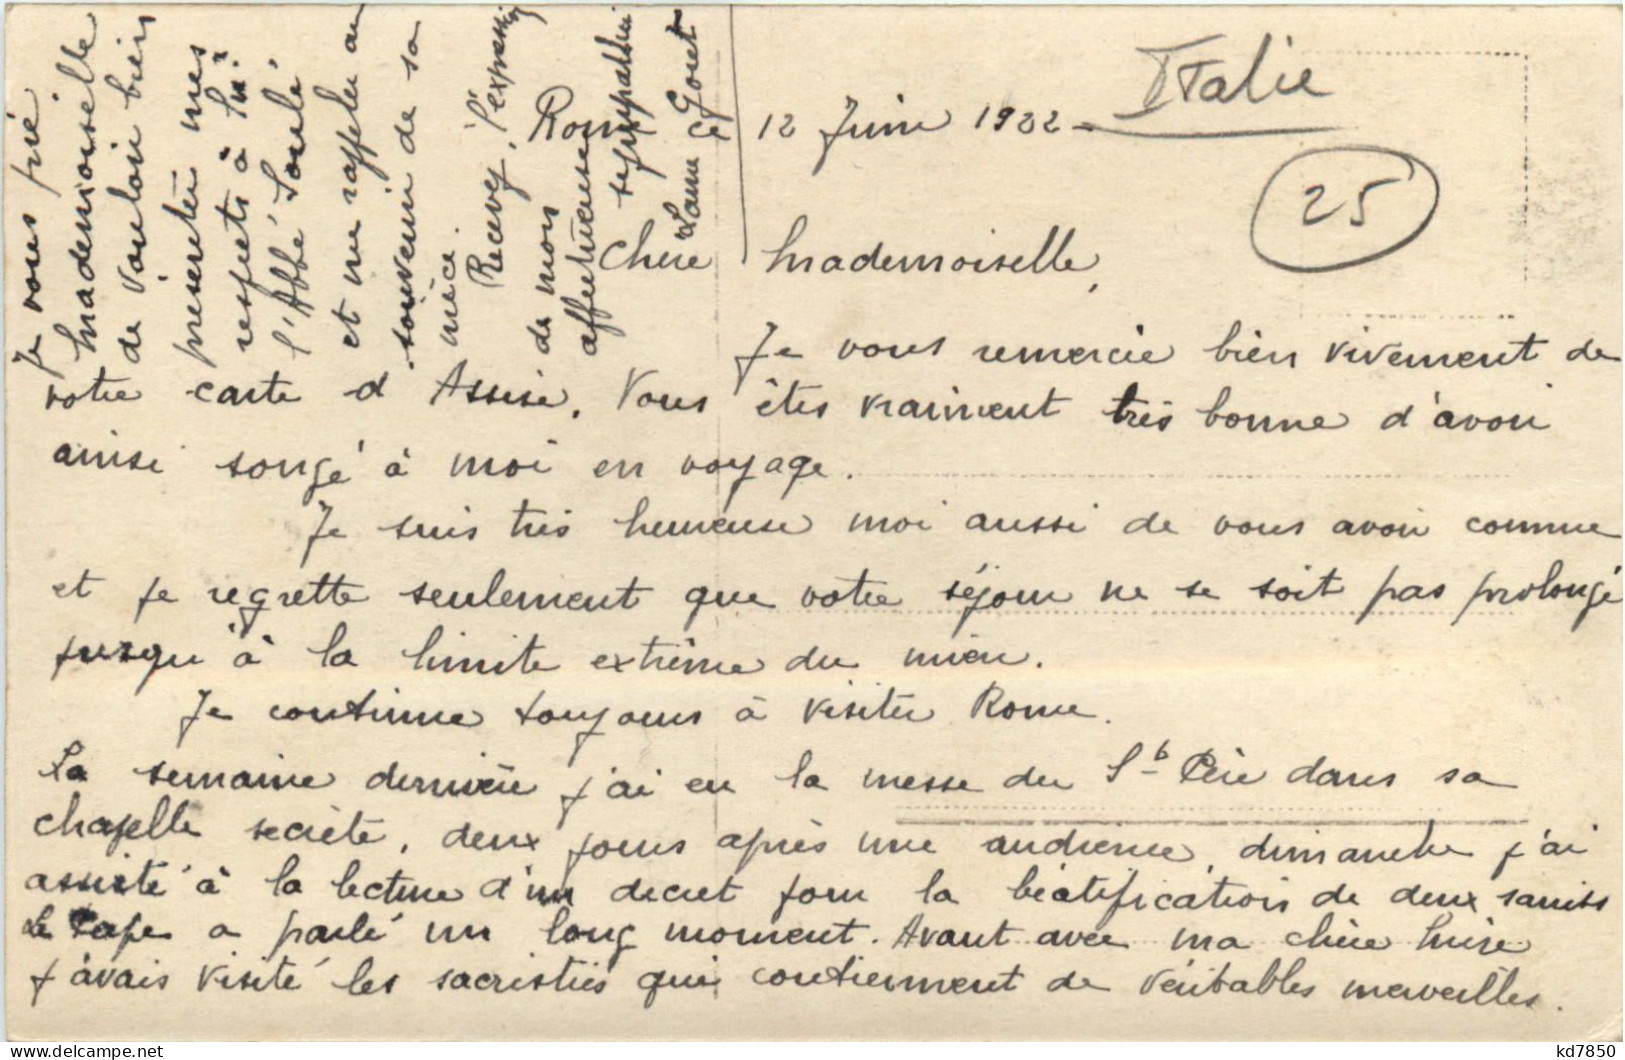 Italie
25
Rome ce 12 Juin 1922-
Chère Mademoiselle,
Je vous remercie bien vivement de
votre carte d'Assise. Vous êtes vraiment très bonne d'avoir
ainsi songé à moi en voyage.
Je suis très heureuse moi aussi de vous avoir connue
et je regrette seulement que votre séjour ne se soit pas prolongé
jusqu'à la limite extrême du mien.
Je continue toujours à visiter Rome.
La semaine dernière j'ai eu la messe du St Père dans sa
chapelle secrète, deux jours après une audience, dimanche j'ai
assisté à la lecture d'un decret pour la béatification de deux saints
Le Pape a parlé un long moment. Avant avec ma chère
j'avais visité les sacristies qui contiennent de véritables merveilles.
Je vous prie
Mademoiselle
de vouloir bien
presenter mes
respects à
l'Abbé Soulé
et me rappeler au
souvenir de sa
nièce.
Recevez, l'expression
de mon
affectueuse
sympathie
Laure Goret
kd7850